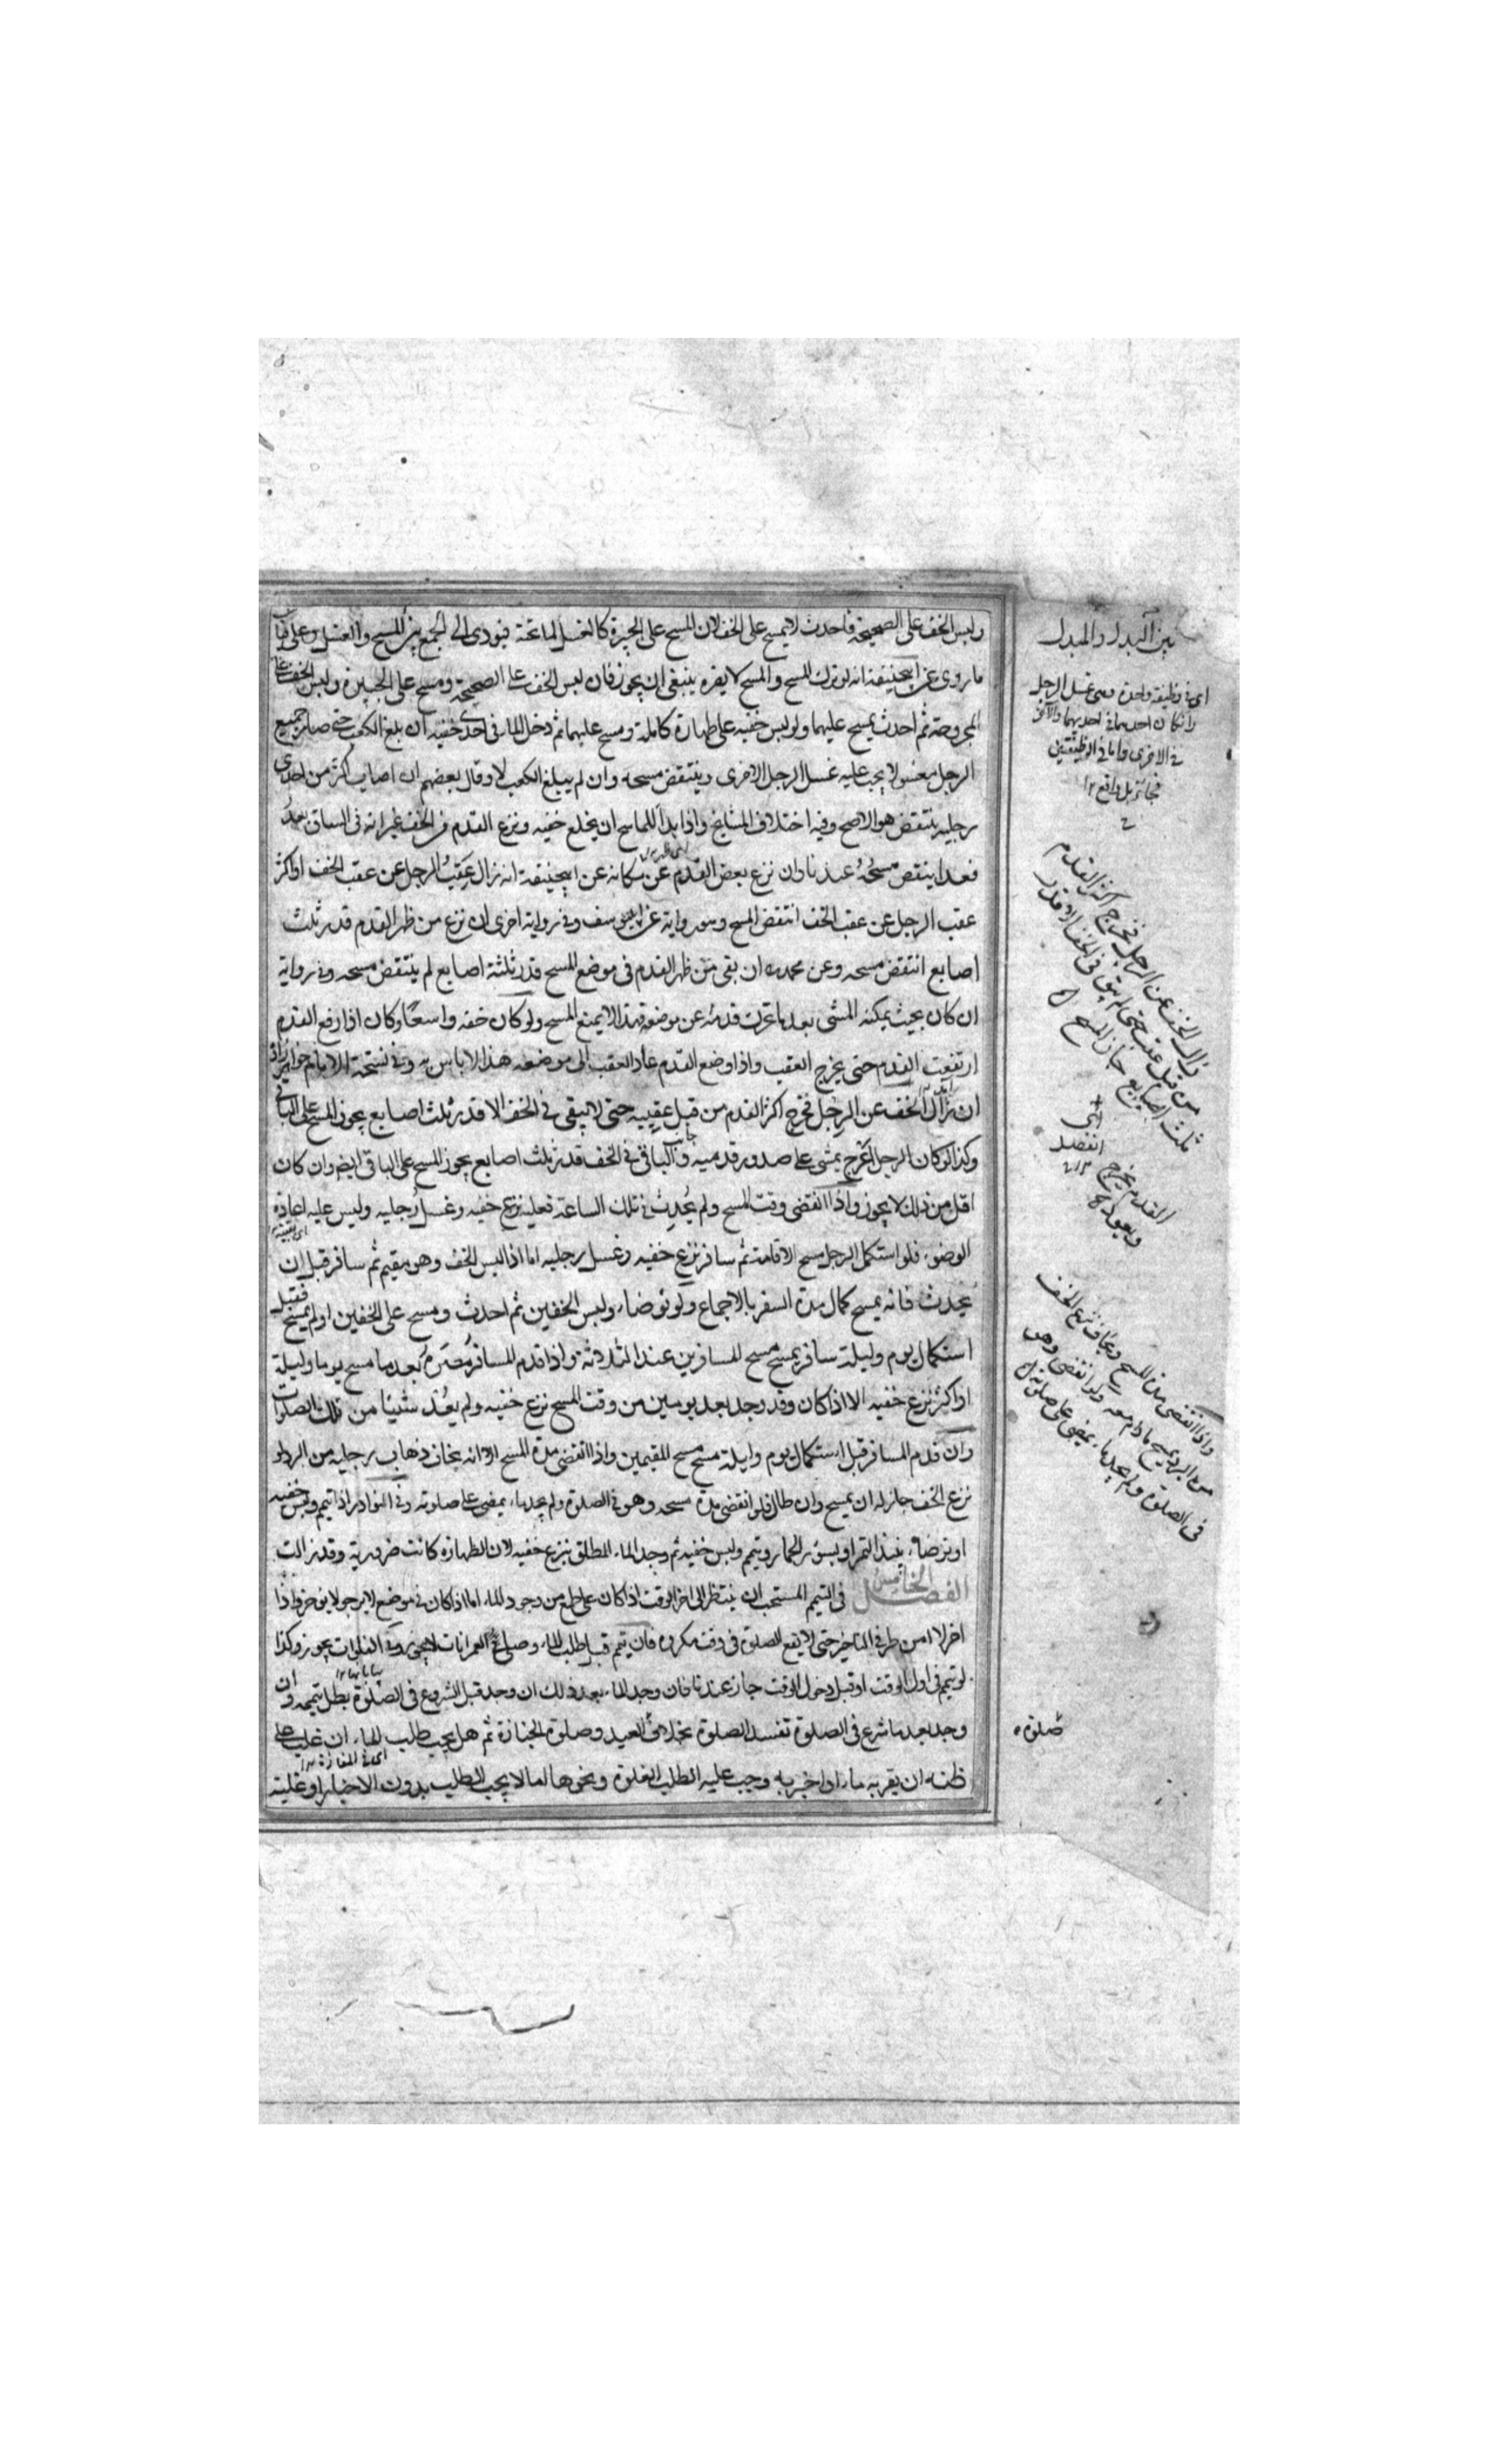 ولبس الخف على الصحيحة فاحدث لا يمسح على الخف لان المسح على الجبيرة كالغسل لما تحته فيودى الى الجمع بين المسح والغسل وعلى قياس
ما روى عن ابيحنيفة انه لو ترك المسح والمسح لا يضره ينبغى ان يجوز فان لبس الخف على الصحيحة ومسح على الجبيرة ولبس الخف على
المجروحة ثم احدث يمسح عليهما ولو لبس خفيه على طهارة كاملة ومسح عليهما ثم دخل الماء فى احدى خفيه ان بلغ الكعب حتى صار جميع
الرجل مغسولا يجب عليه غسل الرجل الاخرى وينتقض مسحه وان لم يبلغ الكعب لا وقال بعضهم ان اصاب اكثر من احدى
رجليه ينتقض هو الاصح وفيه اختلاف المشايخ واذا بدا للماسح ان يخلع خفيه ونزع القدم من الخف غير انه فى الساق بعد
فعدا ينتقض مسحه عندنا وان نزع بعض القدم عن مكانه عن ابيحنيفة انه زال عقب الرجل عن عقب الخف او اكثر
عقب الرجل عن عقب الخف انتقض المسح وهو رواية عن ابى يوسف وفى رواية اخرى ان نزع من ظهر القدم قدر ثلث
اصابع انتقض مسحه وعن محمد ان بقى من ظهر القدم فى موضع المسح قدر ثلثة اصابع لم ينتقض مسحه وفى رواية
ان كان بحيث يمكنه المشى بعد ما تحركت قدمه عن موضعه فهذا لا يمنع المسح ولو كان خفه واسعا وكان اذا رفع القدم
ارتفعت القدم حتى يخرج العقب واذا وضع القدم عاد العقب الى موضعه هذا لا باس به وفى نسخة الامام خواهرزاده
ان زال الخف عن الرجل فخرج اكثر القدم من قبل عقبيه حتى لا يبقى فى الخف الا قدر ثلث اصابع يجوز المسح على الباقى
وكذا لو كان الرجل اعرج يمشى على صدور قدميه والباقى فى الخف قدر ثلث اصابع يجوز المسح على الباقى ايضا وان كان
اقل من ذلك لا يجوز واذا انقضى وقت المسح ولم يحدث فى تلك الساعة فعليه نزع خفيه وغسل رجليه وليس عليه اعادة
الوضوء فلو استكمل الرجل مسح الاقامة ثم سافر نزع خفيه وغسل رجليه اما اذا لبس الخف وهو مقيم ثم سافر قبل ان
يحدث فانه يمسح كمال مدة السفر بالاجماع ولو توضاء ولبس الخفين ثم احدث ومسح على الخفين او لم يمسح فقبل
استكمال يوم وليلة سافر يمسح مسح المسافرين عند الثلاثة واذا قدم المسافر مصره بعد ما مسح يوما وليلة
او اكثر نزع خفيه الا اذا كان وقد وجد بعد يومين من وقت المسح نزع خفيه ولم يعد شيئا من تلك الصلوات
وان قدم المسافر قبل استكمال يوم وليلة مسح مسح المقيمين واذا انقضى مدة المسح الا انه يخاف ذهاب رجليه من البرد لو
نزع الخف جاز له ان يمسح وان طال فلو انقضى مدة مسحه وهو فى الصلوة ولم يجد ماء يمضى على صلوته وفى النوادر اذا تيمم ولبس خفيه
او توضاء بنبيذ التمر او بسؤر الحمار وتيمم ولبس خفيه ثم وجد الماء المطلق ينزع خفيه لان الطهارة كانت ضرورية وقد زالت
الفصل الخامس فى التيمم المستحب ان ينتظر الى اخر الوقت اذا كان على طمع من وجود الماء اما اذا كان فى موضع لا يرجو لا يؤخر واذا
اخر لا امن طرفى التاخير حتى لا تقع الصلوة فى وقت مكروه فان تيمم قبل طلب الماء وصلى فى العمرانات لا يجوز وفى الفلوات يجوز وكذا
لو تيمم فى اول الوقت او قبل دخول الوقت جاز عندنا فان وجد الماء بعد ذلك ان وجد قبل الشروع فى الصلوة بطل تيممه وان
وجد بعد ما شرع فى الصلوة تفسد الصلوة بخلاف العيد وصلوة الجنازة ثم هل يجب طلب الماء ان غلب على
ظنه ان يقربه ماء او اخبر به وجب عليه الطلب الغلوة ونحوها اما لا يجب الطلب بدون الاخبار او غلبة
بين البدل والمبدل
اى فى وظيفة واحدة وهى غسل الرجل
وان كان احدهما فى احديهما والآخر
فى الاخرى واما فى الوظيفتين
فجائز بل واقع ١٢
زال الخف عن الرجل فخرج اكثر القدم
من قبل عقبه حتى لم يبق فى الخف الا قدر
ثلث اصابع جاز المسح
القدم يخرج
ويعود
واذا انقضى مدة المسح ويخاف نزع الخف
من البرد يمسح ما دام معه ولو انقضى وهو
فى الصلوة ولم يجد ماء يمضى على صلوته
صلوة